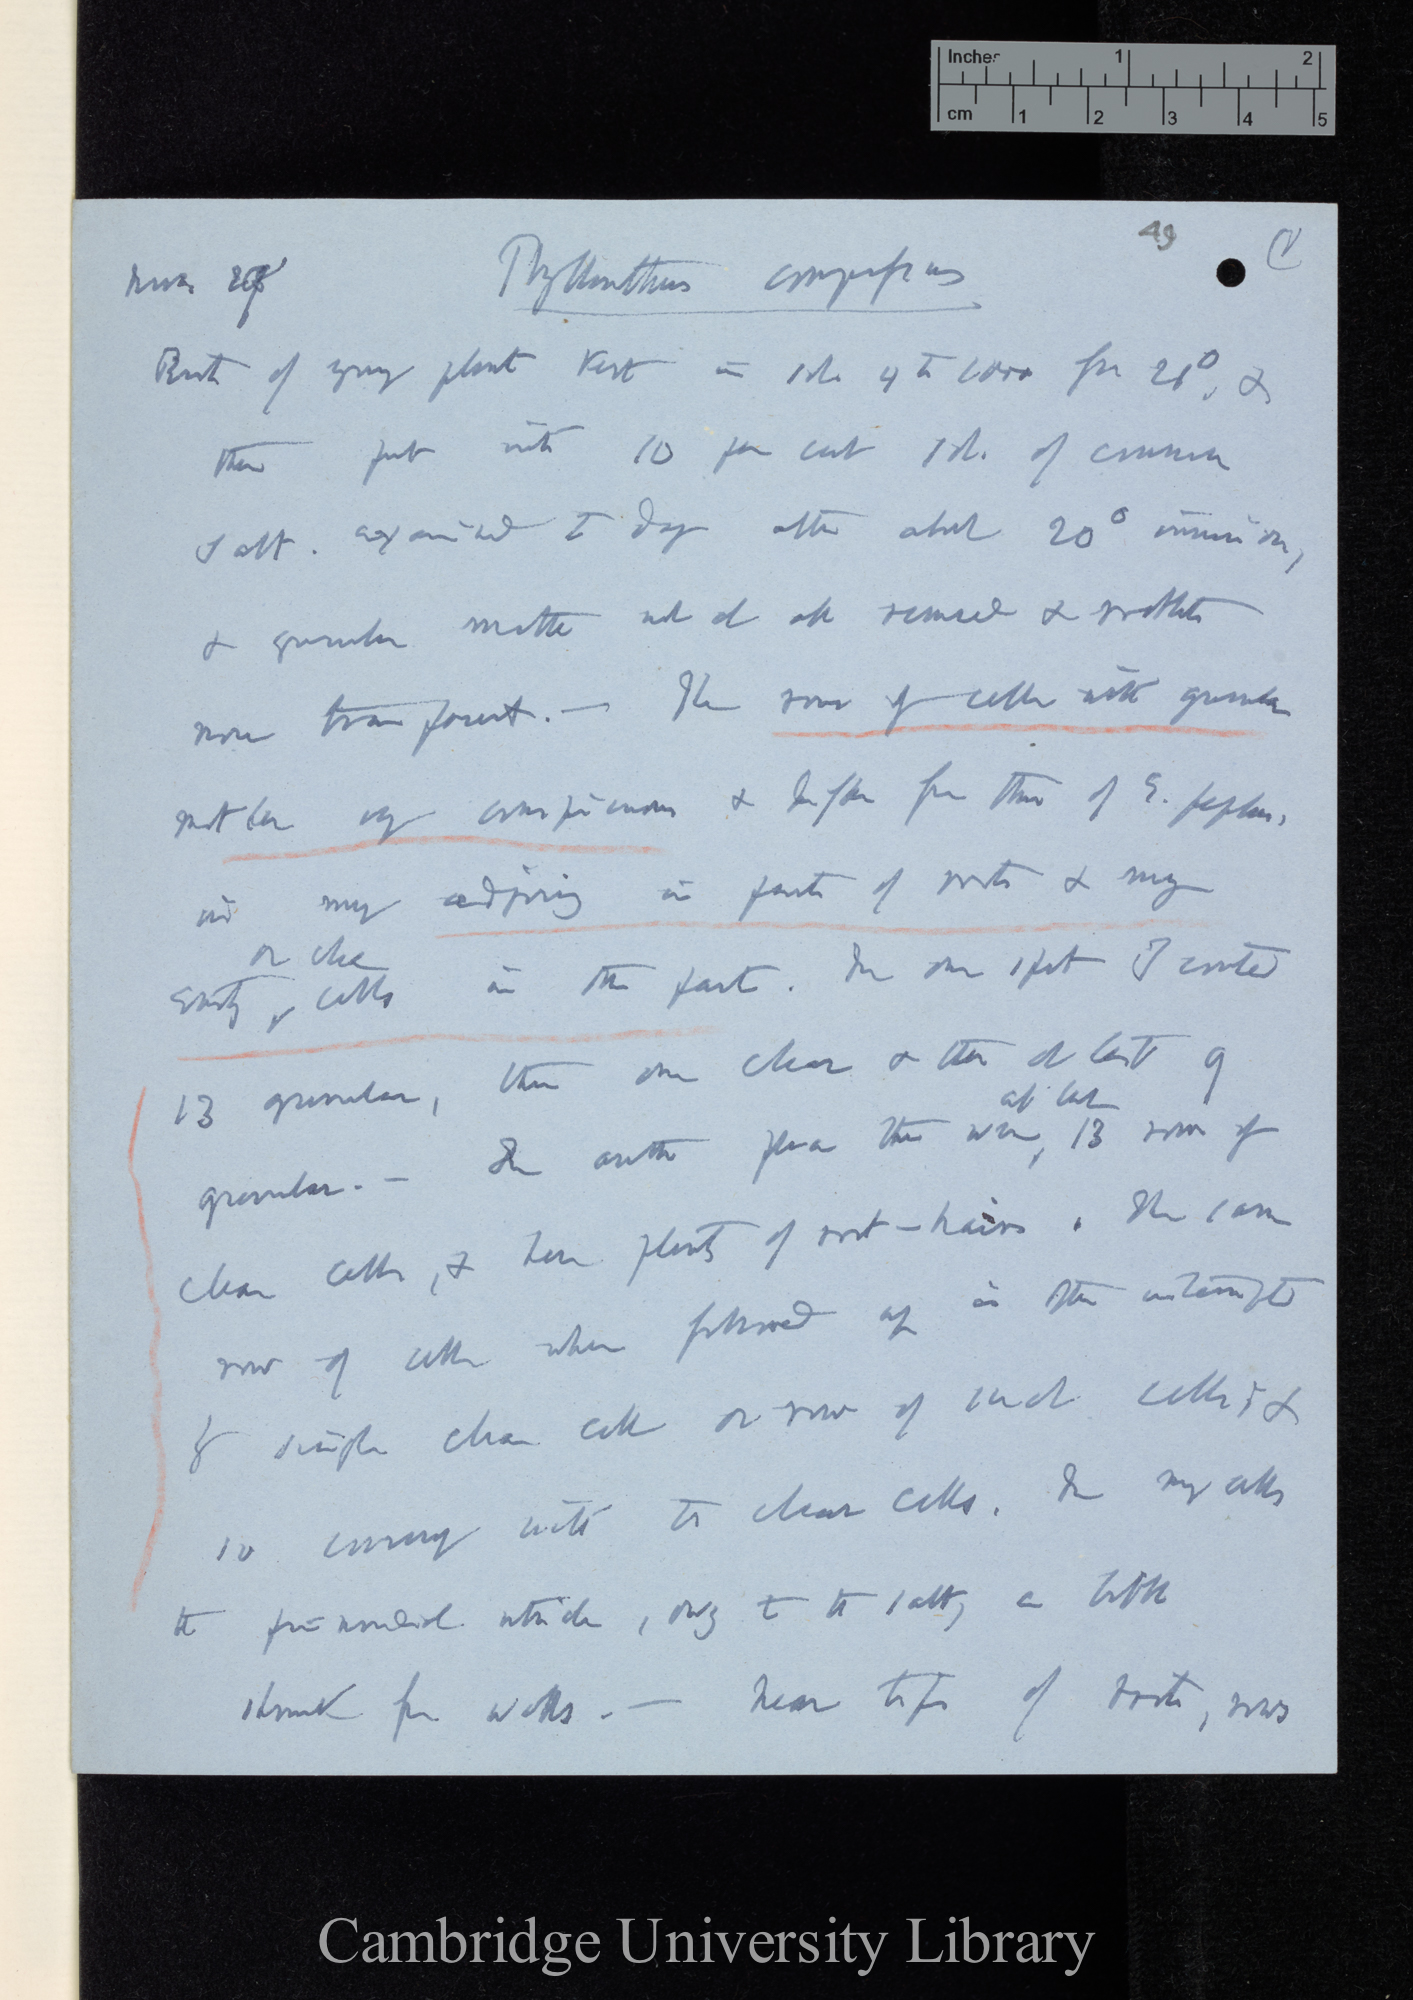 Inches 1 2
cm 1 2 3 4 5
49
Phyllanthus compressus
Roots of young plant kept in sol. 4 to 1000 for 21°, &
then put into 10 per cent sol. of common
Salt. examined to day after about 20° immersion,
& granular matter not at all removed &
more transparent. — The rows of cells with granular
matter very conspicuous & differ from those of E. peplus,
in many adjoining in parts of roots & many
or clear
Empty cells in other parts. In one spot I counted
13 granular, then one clear & then at least 9
at least
granular. — In another place there were, 13 rows of
clear cells, & here plenty of root-hairs. The same
row of cells when followed up is often interrupted
by single clear cell or row of such cells; &
so conversely with the clear cells. In many cells
the primordial utricle, owing to the salt, a little
shrunk from walls. — Near tips of roots, rows
Cambridge University Library